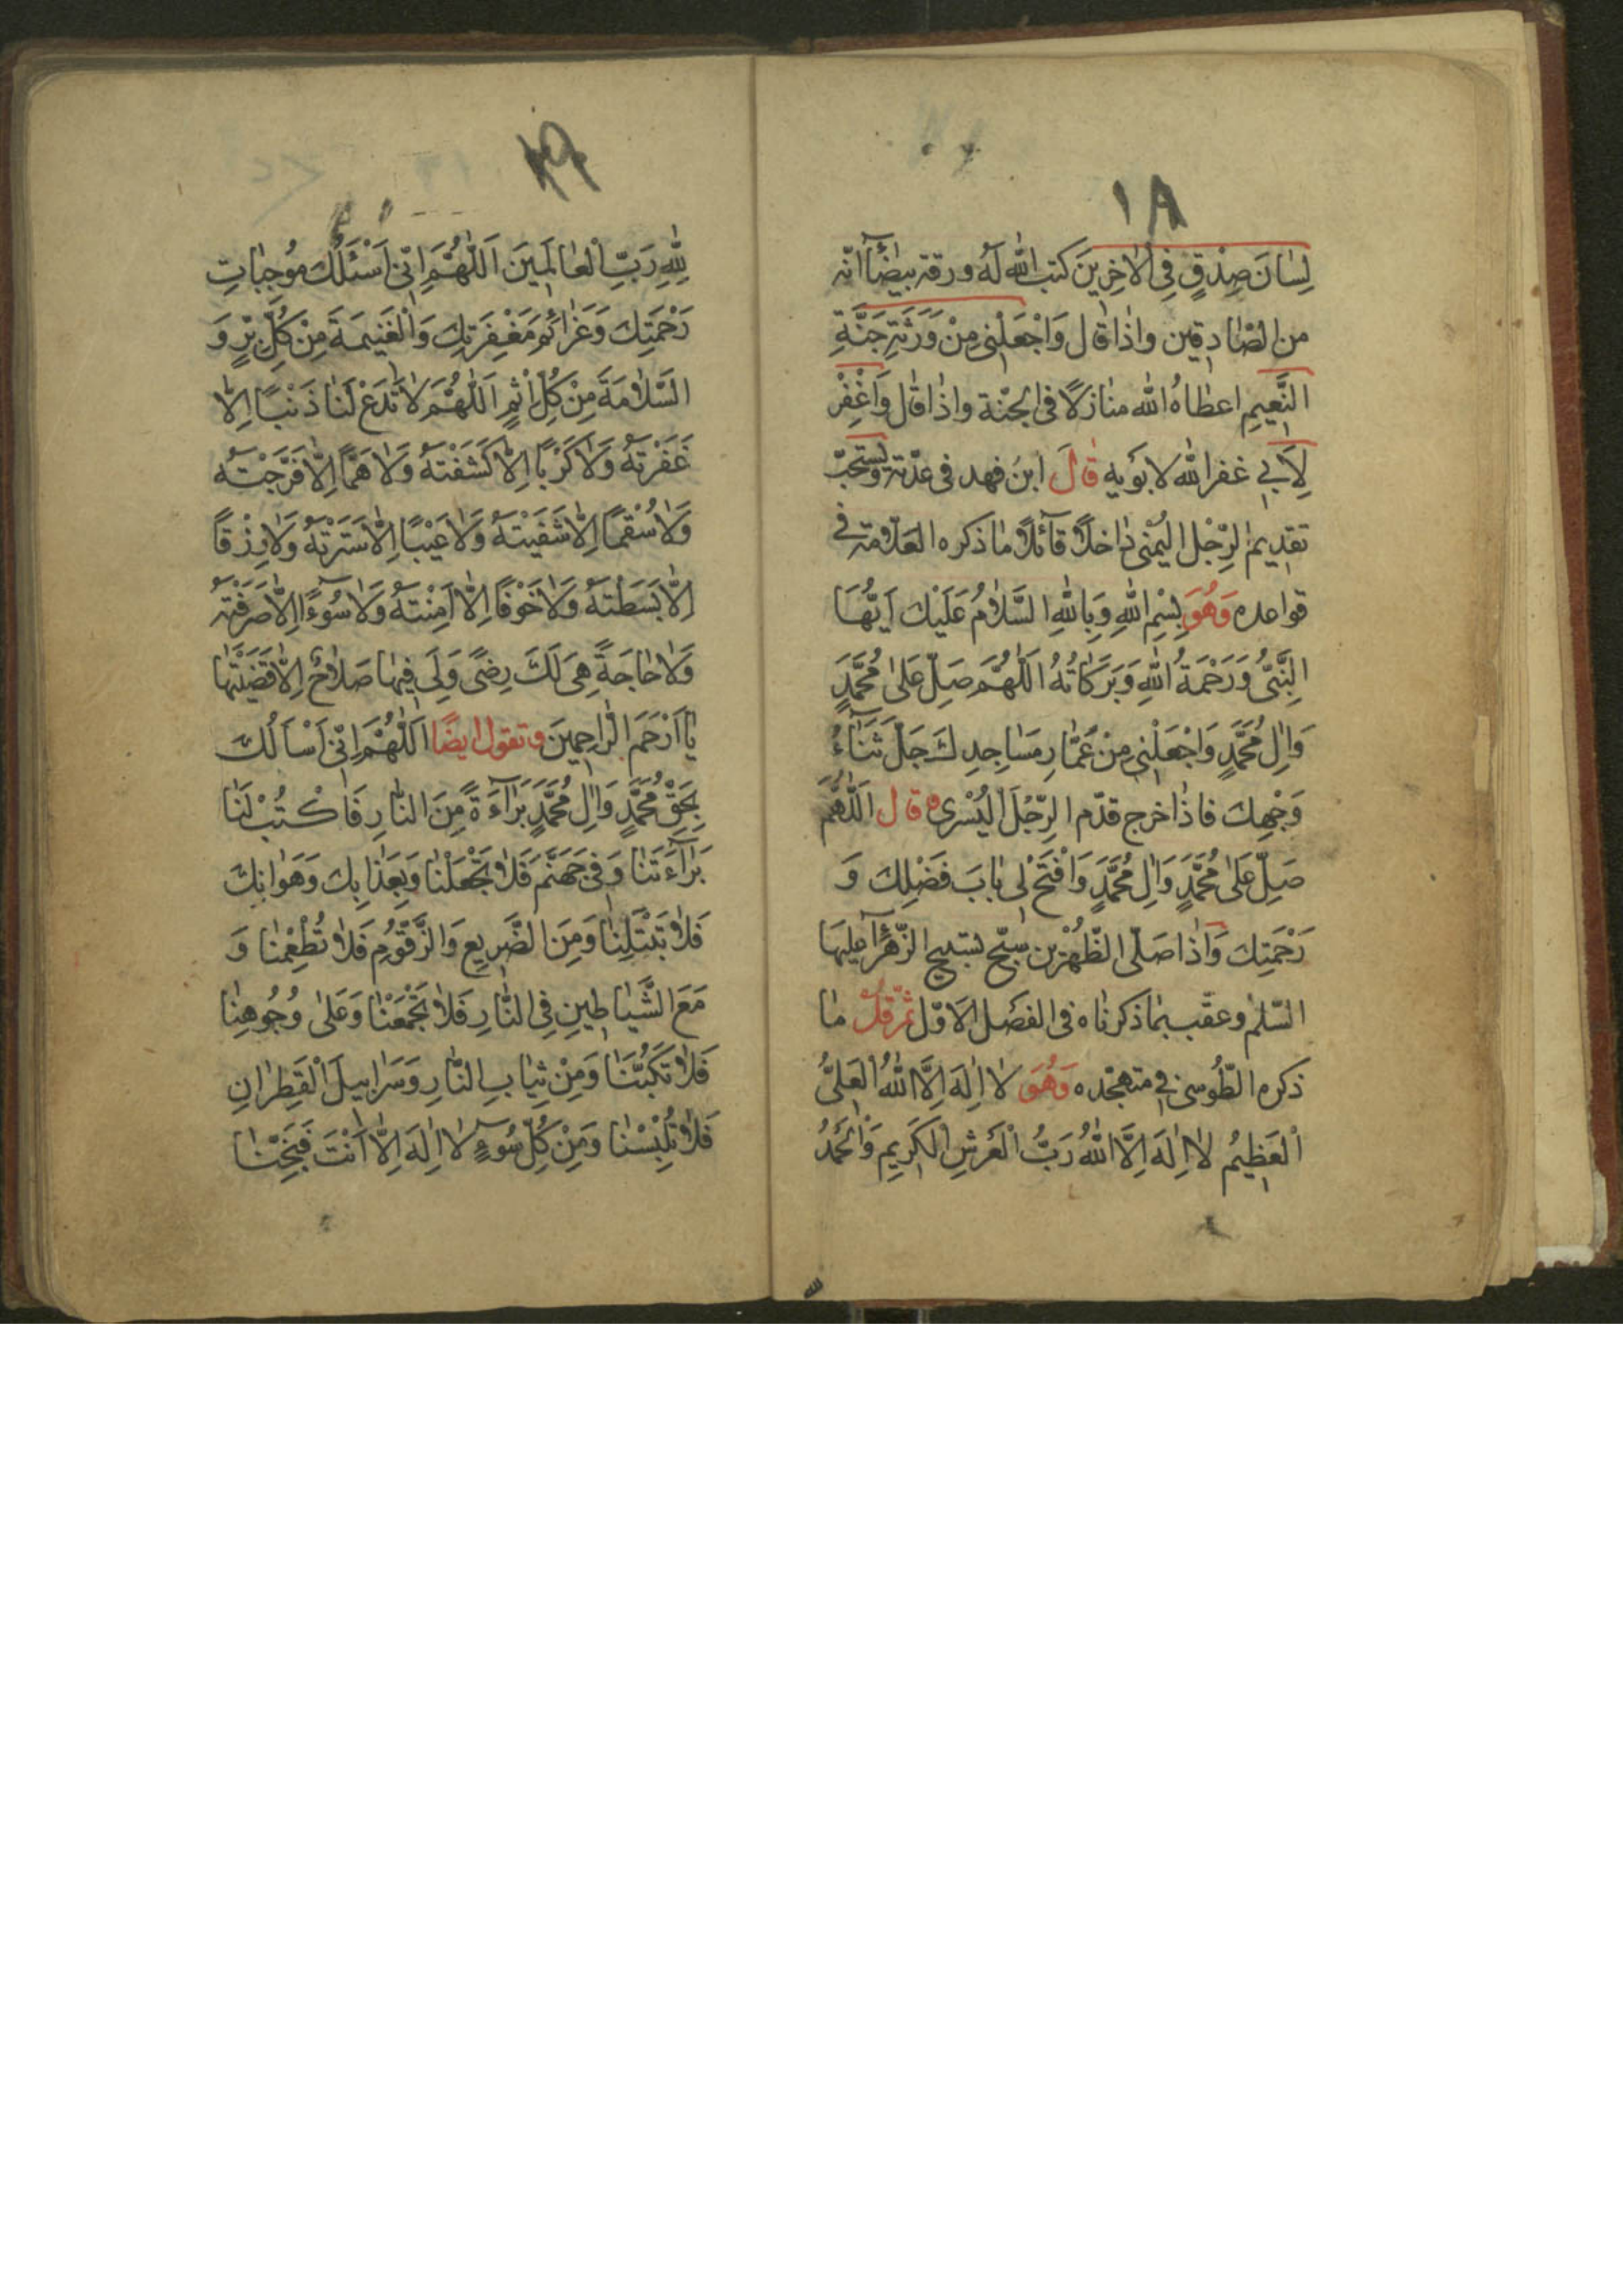 ١٨
لِسٰانَ صِدْقٍ فِى الْاٰخِرِينَ كتب الله لَهُ ورقة بيضٰٓاء انّه
من الصّٰادقين واذٰا قٰال وَاجْعَلْنِى مِنْ وَرَثَةِ جَنَّةِ
النَّعِيمِ اعطٰاهُ الله منٰازلًا فى الجنّة واذٰا قٰال وَاغْفِرْ
لِاَبِى غفر الله لابَويه قٰالَ ابنُ فهد فى عدّته ويستحبّ
تقديم الرِّجْل اليُمْنىٰ دٰاخلًا قٰآئلًا مٰا ذكره العلّامة فى
قواعده وَهُوَ بِسْمِ اللهِ وَبِاللهِ السَّلٰامُ عَلَيْكَ اَيُّهَا
النَّبِىُّ وَرَحْمَةُ اللهِ وَبَرَكٰاتُهُ اَللّٰهُمَّ صَلِّ عَلىٰ مُحَمَّدٍ
وَاٰلِ مُحَمَّدٍ وَاجْعَلْنِى مِنْ عُمّٰارِ مَسٰاجِدِكَ جَلَّ ثَنٰٓاءُ
وَجْهِكَ فاذٰا خرج قدّم الرِّجْلَ الْيُسْرىٰ وقٰال اَللّٰهُمَّ
صَلِّ عَلىٰ مُحَمَّدٍ وَاٰلِ مُحَمَّدٍ وَافْتَحْ لِى بٰابَ فَضْلِكَ وَ
رَحْمَتِكَ وَاذٰا صَلّى الظّهْرين سبّح بتسبيح الزّهرٰٓاء عليها
السّلٰم وعقّب بمٰا ذكرنٰاه فى الفصل الاوّل ثمّ قُلْ مٰا
ذكره الطّوسى فى متهجّده وَهُوَ لٰا اِلٰهَ اِلَّا اللهُ الْعَلِىُّ
الْعَظِيمُ لٰا اِلٰهَ اِلَّا اللهُ رَبُّ الْعَرْشِ الْكَرِيمِ وَالْحَمْدُ
١٩
لِلّٰهِ رَبِّ الْعٰالَمِينَ اَللّٰهُمَّ اِنّى اَسْئَلُكَ مُوجِبٰاتِ
رَحْمَتِكَ وَعَزٰائِمَ مَغْفِرَتِكَ وَالْغَنِيمَةَ مِنْ كُلِّ بِرٍّ وَ
السَّلٰامَةَ مِنْ كُلِّ اِثْمٍ اَللّٰهُمَّ لٰا تَدَعْ لَنٰا ذَنْبًا اِلّٰا
غَفَرْتَهُ وَلٰا كَرْبًا اِلّٰا كَشَفْتَهُ وَلٰا هَمًّا اِلّٰا فَرَّجْتَهُ
وَلٰا سُقْمًا اِلّٰا شَفَيْتَهُ وَلٰا عَيْبًا اِلّٰا سَتَرْتَهُ وَلٰا رِزْقًا
اِلّٰا بَسَطْتَهُ وَلٰا خَوْفًا اِلّٰا اٰمَنْتَهُ وَلٰا سُوءًا اِلّٰا صَرَفْتَهُ
وَلٰا حٰاجَةً هِىَ لَكَ رِضًى وَلِىَ فِيهٰا صَلٰاحٌ اِلّٰا قَضَيْتَهٰا
يٰا اَرْحَمَ الرّٰاحِمِينَ وتقول ايضًا اَللّٰهُمَّ اِنّى اَسْاَلُكَ
بِحَقِّ مُحَمَّدٍ وَاٰلِ مُحَمَّدٍ بَرٰٓاءَةً مِنَ النّٰارِ فَاكْتُبْ لَنٰا
بَرٰٓاءَتَنٰا وَفِى جَهَنَّمَ فَلٰا تَجْعَلْنٰا وَبِعَذٰابِكَ وَهَوٰانِكَ
فَلٰا تَبْتَلِنٰا وَمِنَ الضَّرِيعِ وَالزَّقُّومِ فَلٰا تُطْعِمْنٰا وَ
مَعَ الشَّيٰاطِينِ فِى النّٰارِ فَلٰا تَجْمَعْنٰا وَعَلىٰ وُجُوهِنٰا
فَلٰا تَكُبَّنٰا وَمِنْ ثِيٰابِ النّٰارِ وَسَرٰابِيلَ الْقَطِرٰانِ
فَلٰا تُلْبِسْنٰا وَمِنْ كُلِّ سُوٓءٍ لٰا اِلٰهَ اِلّٰا اَنْتَ فَنَجِّنٰا